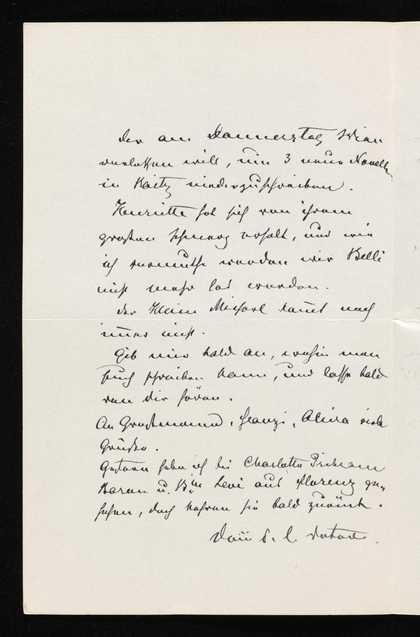 der am Donnerstag Wien
verlassen will, um 3 neue Novellen
in Raitz niederzuschreiben.
Henriette hat sich von ihrem
großen Schmerz erholt, und wie
ich vermuthe werden wir Belli
nicht mehr los werden.
Der kleine Michael kennt noch
immer nicht.
Gib mir bald an, wohin man
Euch schreiben kann, und lasse bald
von dir hören.
An Großmama, Franzi, viele
Grüße.
Gestern haben ich die Charlotte
Baron u. Levi aus Florenz ge-
sehen, doch kehren sie bald zurück.
Dein